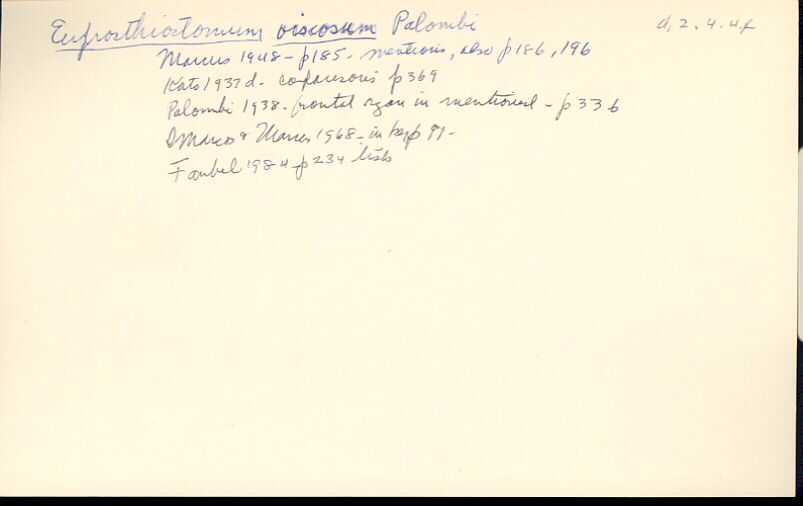 Euprosthiostomum viscosum Palombi d, 2. 4. 4x
Marcus 1948 - p185 - mentions, also p186, 196
Kato 1937d - comparisons p369
Palombi 1938 - frontal organ in mentioned - p 336
Marcus & Marcus 1968 - in key p 91 -
Faubel 1984 - p 234 lists